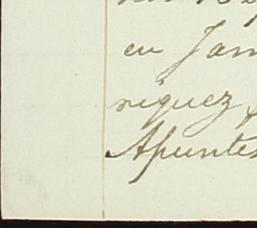 en Jan
riquez,
Apuntes